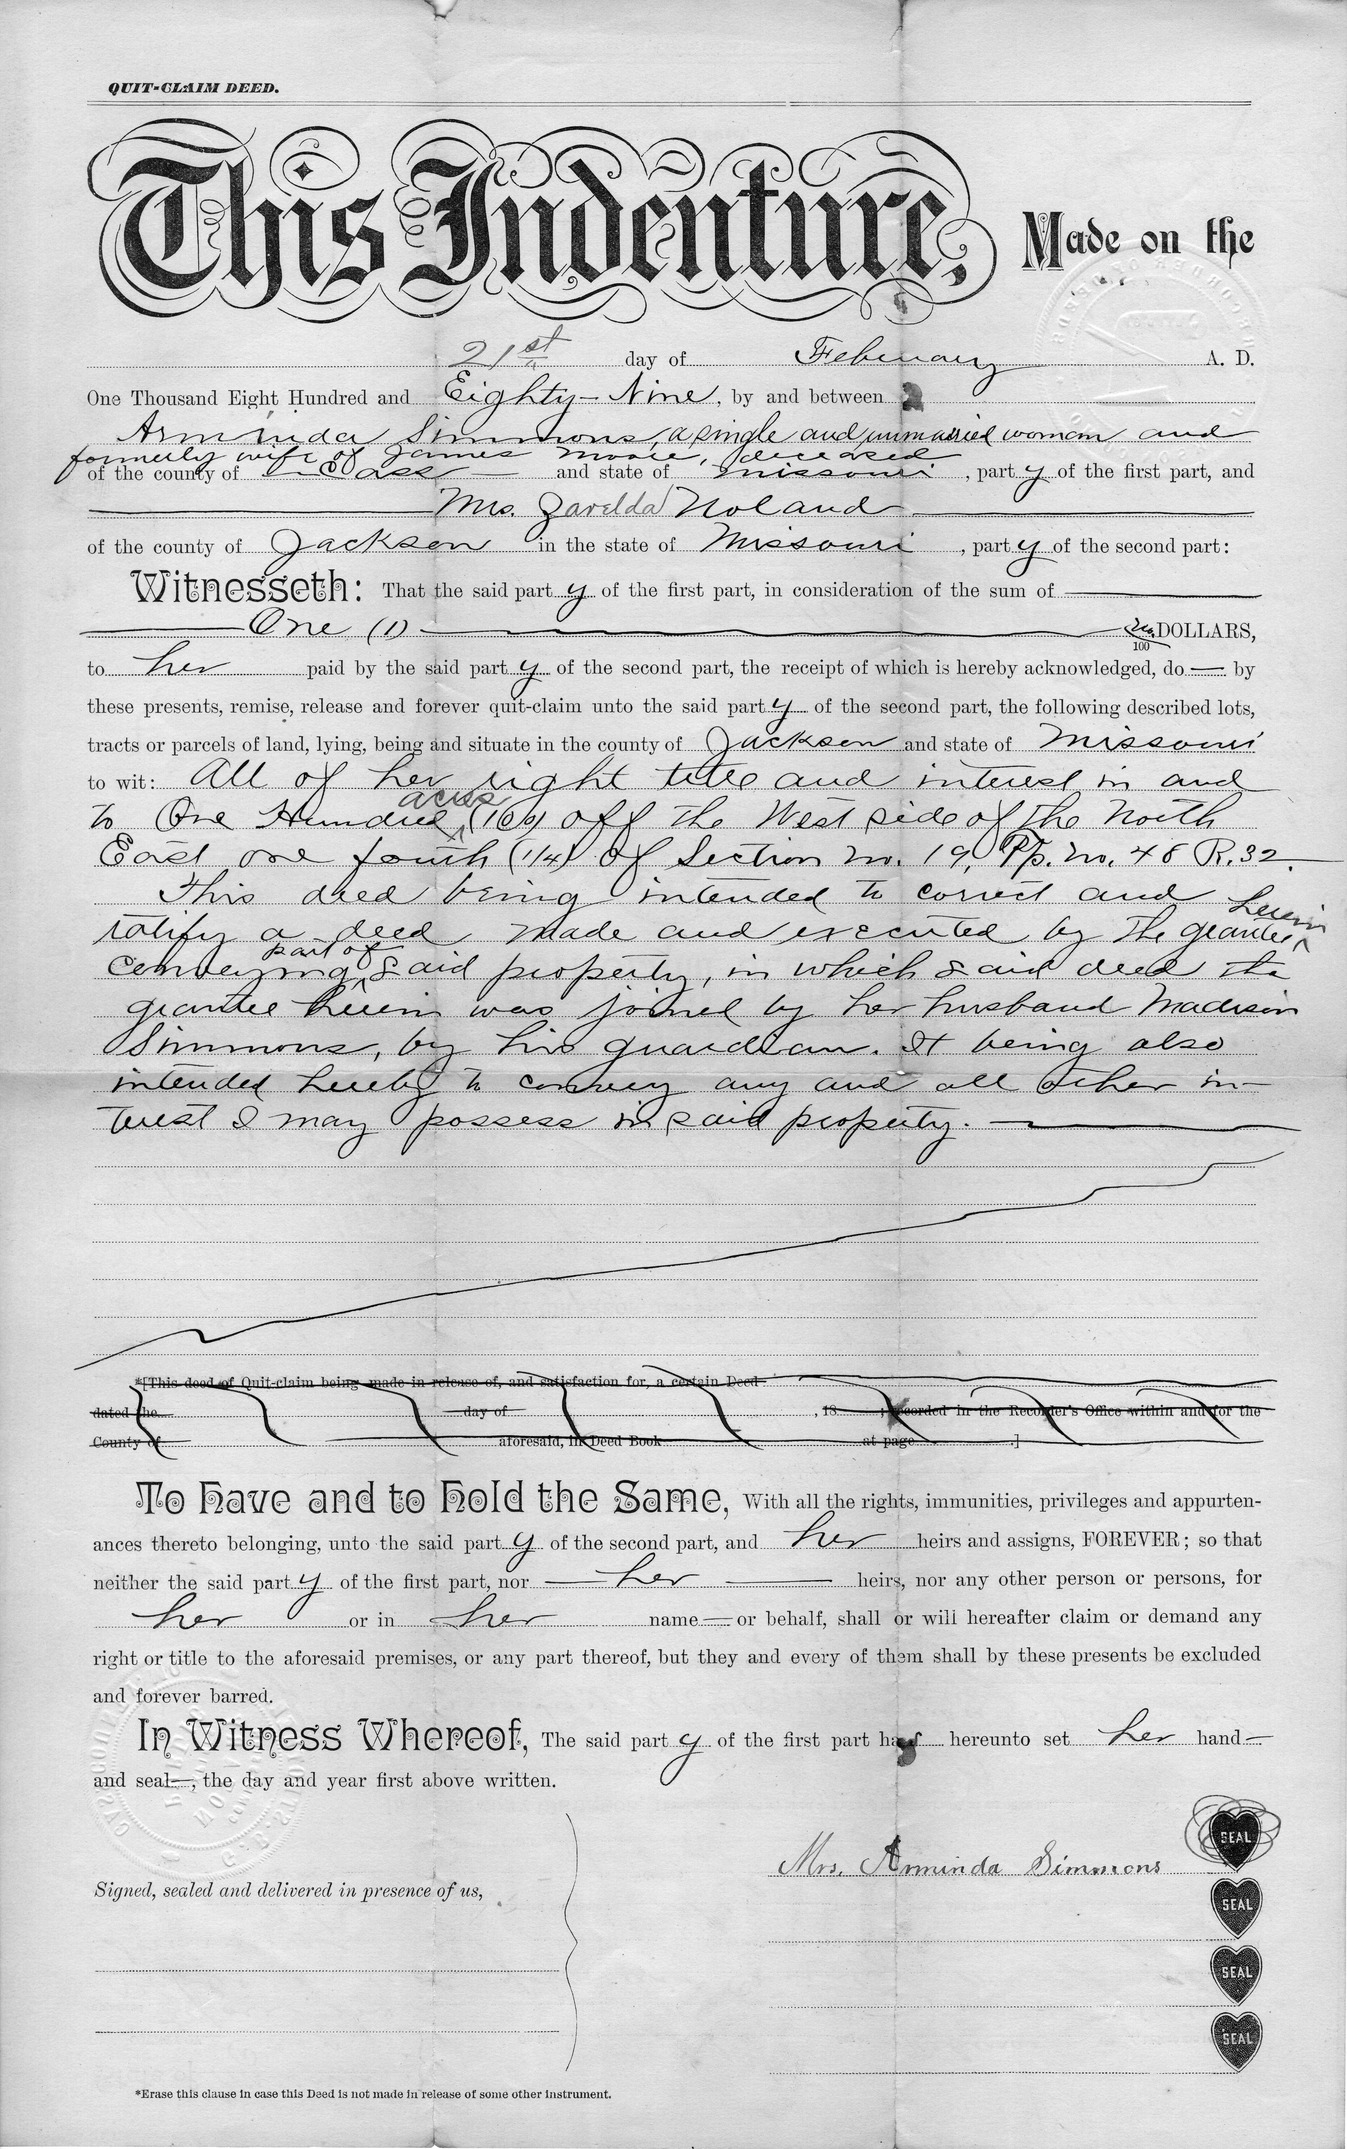 QUIT-CLAIM DEED.
This Indenture, Made on the
21st day of February A. D.
One Thousand Eight Hundred and Eighty-Nine, by and between
Arminda Simmons, a single and unmarried woman and
formerly wife of James Moore, deceased
of the county of Cass and state of Missouri, party of the first part, and
Mrs. Zarelda Noland
of the county of Jackson in the state of Missouri, party of the second part:
Witnesseth: That the said party of the first part, in consideration of the sum of
One (1) no/100 DOLLARS,
to her paid by the said party of the second part, the receipt of which is hereby acknowledged, do — by
these presents, remise, release and forever quit-claim unto the said party of the second part, the following described lots,
tracts or parcels of land, lying, being and situate in the county of Jackson and state of Missouri
to wit: All of her right title and interest in and
acres
to One Hundred (100) off the West side of the North
East one fourth (1/4) of Section no. 19, Tp. no. 48 R. 32.
This deed being intended to correct and
herein
ratify a deed made and executed by the grantee
part of
conveying said property, in which said deed the
grantee herein was joined by her husband Madison
Simmons, by his guardian. It being also
intended hereby to convey any and all other in-
terest I may possess in said property.
*[This deed of Quit-claim being made in release of, and satisfaction for, a certain Deed
dated the day of , 18 ; recorded in the Recorder's Office within and for the
County of aforesaid, in Deed Book at page .]
To Have and to Hold the Same, With all the rights, immunities, privileges and appurten-
ances thereto belonging, unto the said party of the second part, and her heirs and assigns, FOREVER; so that
neither the said party of the first part, nor her heirs, nor any other person or persons, for
her or in her name — or behalf, shall or will hereafter claim or demand any
right or title to the aforesaid premises, or any part thereof, but they and every of them shall by these presents be excluded
and forever barred.
In Witness Whereof, The said party of the first part has hereunto set her hand —
and seal —, the day and year first above written.
SEAL
Mrs. Arminda Simmons
Signed, sealed and delivered in presence of us,
SEAL
SEAL
SEAL
*Erase this clause in case this Deed is not made in release of some other instrument.